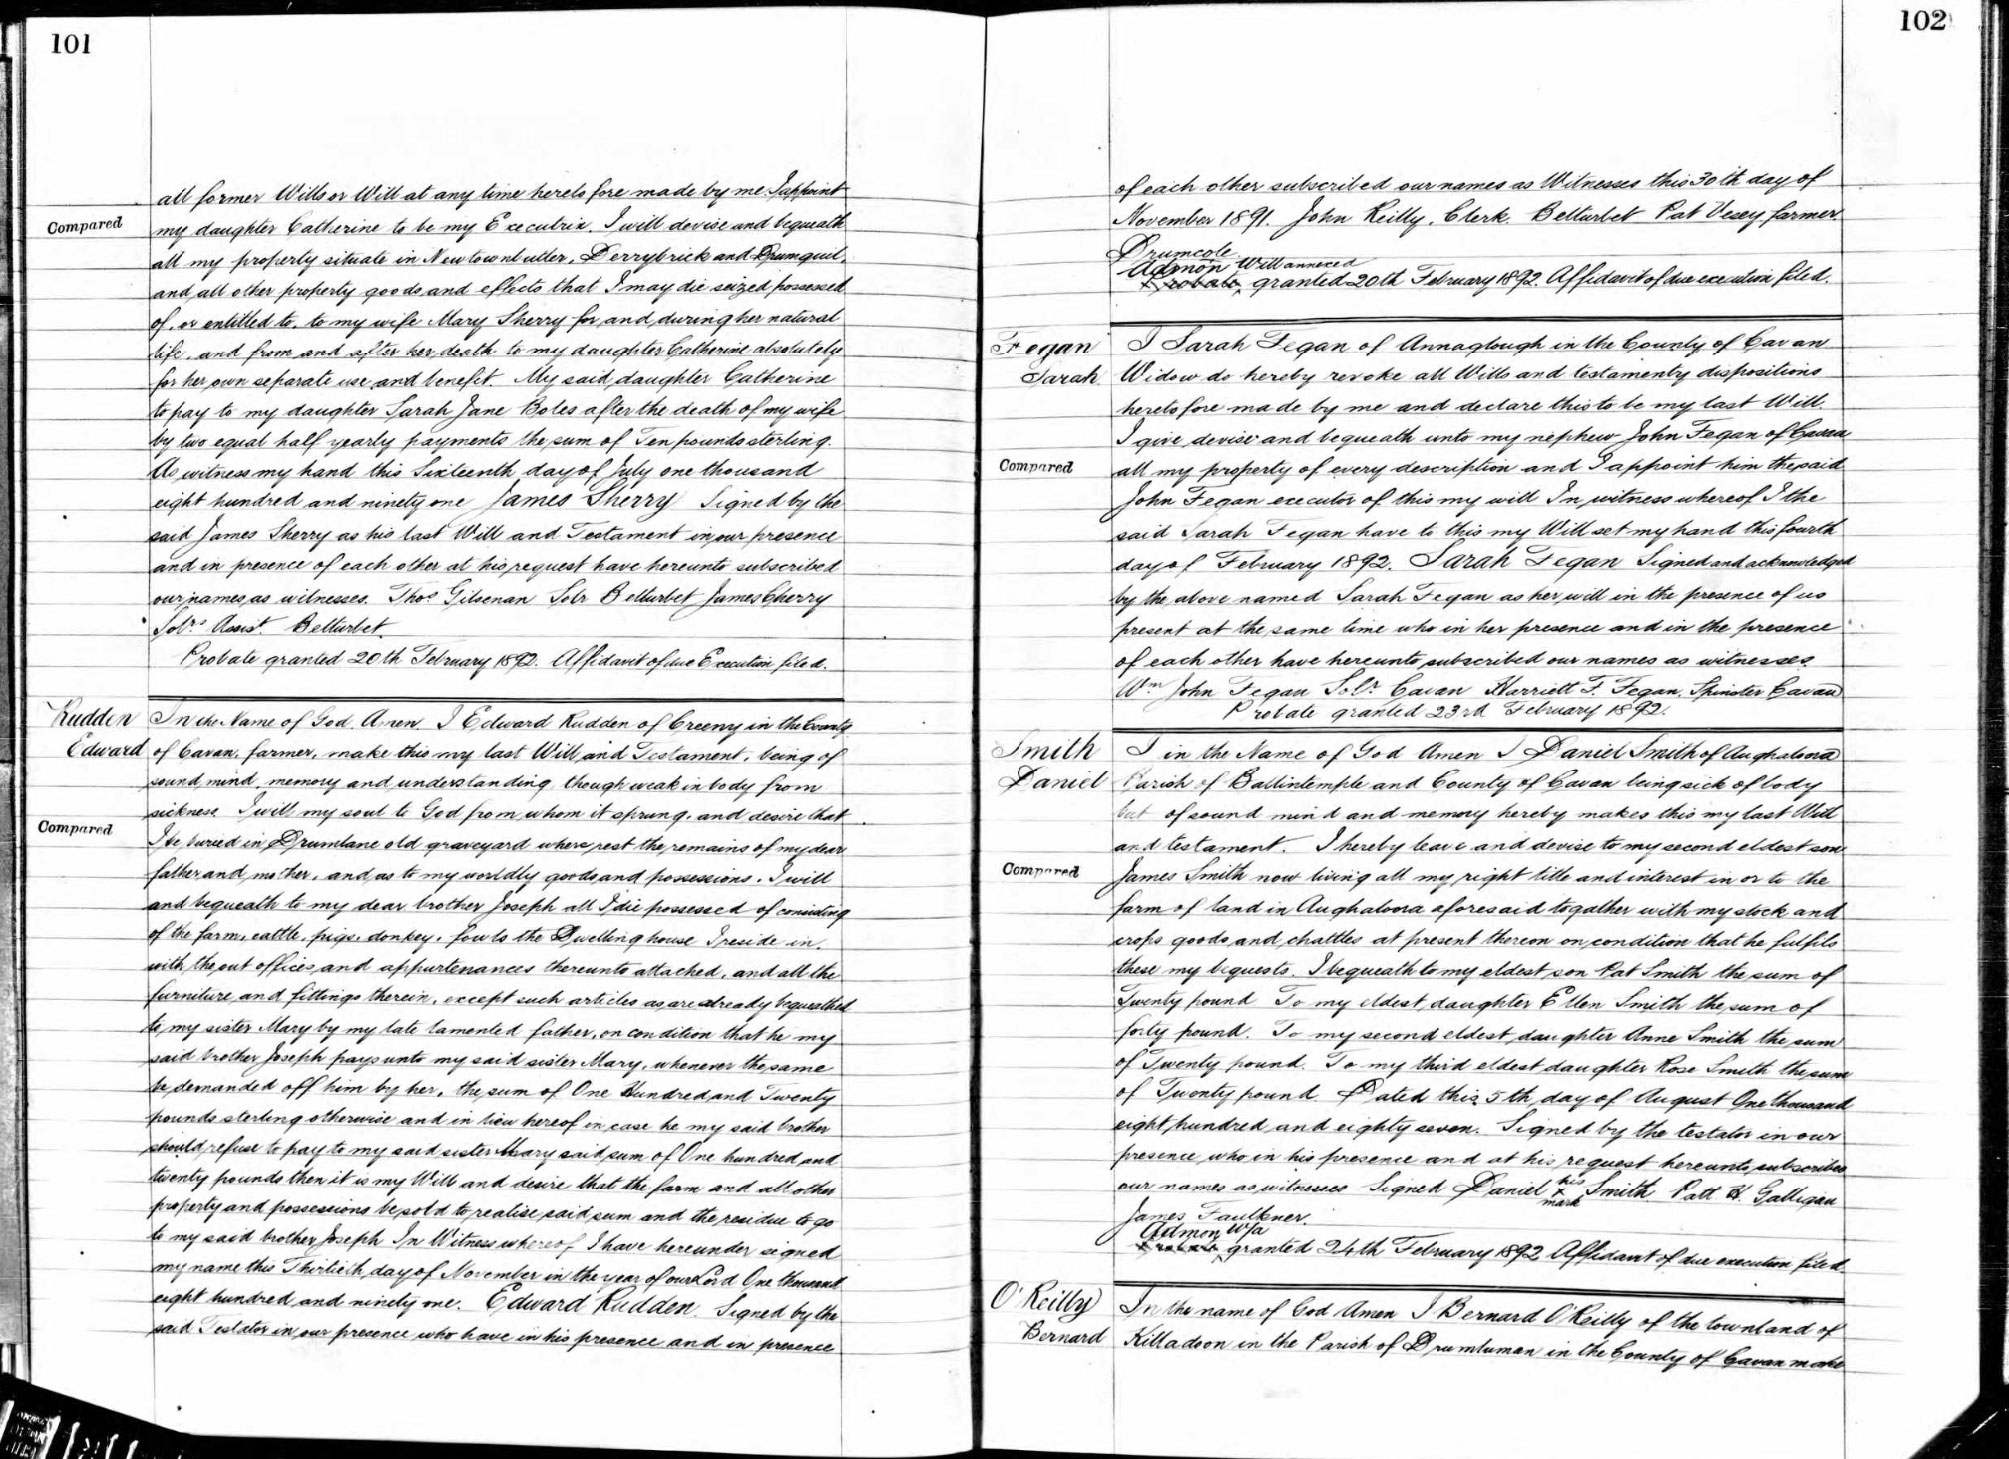 101
all former Wills or Will at any time heretofore made by me. I appoint
Compared
my daughter Catherine to be my Executrix. I will devise and bequeath
all my property situate in Newtownbutler, Derrybrick and Drumquil,
and all other property goods and effects that I may die seized possessed
of, or entitled to, to my wife Mary Sherry for and during her natural
life, and from and after her death to my daughter Catherine absolutely
for her own separate use and benefit. My said daughter Catherine
to pay to my daughter Sarah Jane Boles after the death of my wife
by two equal half yearly payments the sum of Ten pounds sterling.
As witness my hand this Sixteenth day of July one thousand
eight hundred and ninety one James Sherry Signed by the
said James Sherry as his last Will and Testament in our presence
and in presence of each other at his request have hereunto subscribed
our names as witnesses. Thos. Gilsenan Solr Belturbet James Cherry
Solrs. Assist. Belturbet.
Probate granted 20th February 1892. Affidavit of due Execution filed.
Rudden
Edward
In the Name of God. Amen. I Edward Rudden of Creeny in the County
of Cavan, farmer, make this my last Will and Testament, being of
sound mind, memory and understanding, though weak in body from
sickness. I will my soul to God from whom it sprung, and desire that
Compared
I be buried in Drumlane old graveyard where rest the remains of my dear
father and mother, and as to my worldly goods and possessions. I will
and bequeath to my dear brother Joseph all I die possessed of consisting
of the farm, cattle, pigs, donkey, fowls the Dwelling house I reside in,
with the out offices and appurtenances thereunto attached, and all the
furniture and fittings therein, except such articles as are already bequeathed
to my sister Mary by my late lamented father, on condition that he my
said brother Joseph pays unto my said sister Mary, whenever the same
be demanded off him by her, the sum of One Hundred and Twenty
pounds sterling otherwise and in lieu hereof in case he my said brother
should refuse to pay to my said sister Mary said sum of One hundred and
twenty pounds then it is my Will and desire that the farm and all other
property and possessions be sold to realise said sum and the residue to go
to my said brother Joseph In Witness whereof I have hereunder signed
my name this Thirtieth day of November in the year of our Lord One thousand
eight hundred and ninety one. Edward Rudden. Signed by the
said Testator in our presence who have in his presence and in presence
102
of each other subscribed our names as Witnesses this 30th day of
November 1891. John Reilly, Clerk. Belturbet Pat Vesey farmer
Drumcole
Admon Will annexed
Probate, granted 20th February 1892. Affidavit of due execution filed.
Fegan
Sarah
I Sarah Fegan of Annaglough in the County of Cavan
Widow do hereby revoke all Wills and testamenty dispositions
heretofore made by me and declare this to be my last Will
I give devise and bequeath unto my nephew John Fegan of Cavan
Compared
all my property of every description and I appoint him the said
John Fegan executor of this my will In witness whereof I the
said Sarah Fegan have to this my Will set my hand this fourth
day of February 1892. Sarah Fegan Signed and acknowledged
by the above named Sarah Fegan as her will in the presence of us
present at the same time who in her presence and in the presence
of each other have hereunto subscribed our names as witnesses
Wm John Fegan Solr. Cavan Harriett F. Fegan, Spinster Cavan
Probate granted 23rd February 1892.
Smith
Daniel
I in the Name of God Amen I Daniel Smith of Aughaloora
Parish of Ballintemple and County of Cavan being sick of body
but of sound mind and memory hereby makes this my last Will
and testament. I hereby leave and devise to my second eldest son
Compared
James Smith now living all my right title and interest in or to the
farm of land in Aughaloora aforesaid togather with my stock and
crops goods and chattles at present thereon on condition that he fulfils
these my bequests. I bequeath to my eldest son Pat Smith the sum of
Twenty pound To my eldest daughter Ellen Smith the sum of
forty pound. To my second eldest daughter Anne Smith the sum
of Twenty pound. To my third eldest daughter Rose Smith the sum
of Twenty pound Dated this 5th day of August One thousand
eight hundred and eighty seven. Signed by the testator in our
presence who in his presence and at his request hereunto subscribes
our names as witnesses Signed Daniel his x mark Smith Patt H. Galligan
James Faulkner.
Admon W/a
Probate granted 24th February 1892 Affidavit of due execution filed.
O'Reilly
Bernard
In the name of God Amen I Bernard O'Reilly of the townland of
Killadoon in the Parish of Drumluman in the County of Cavan make